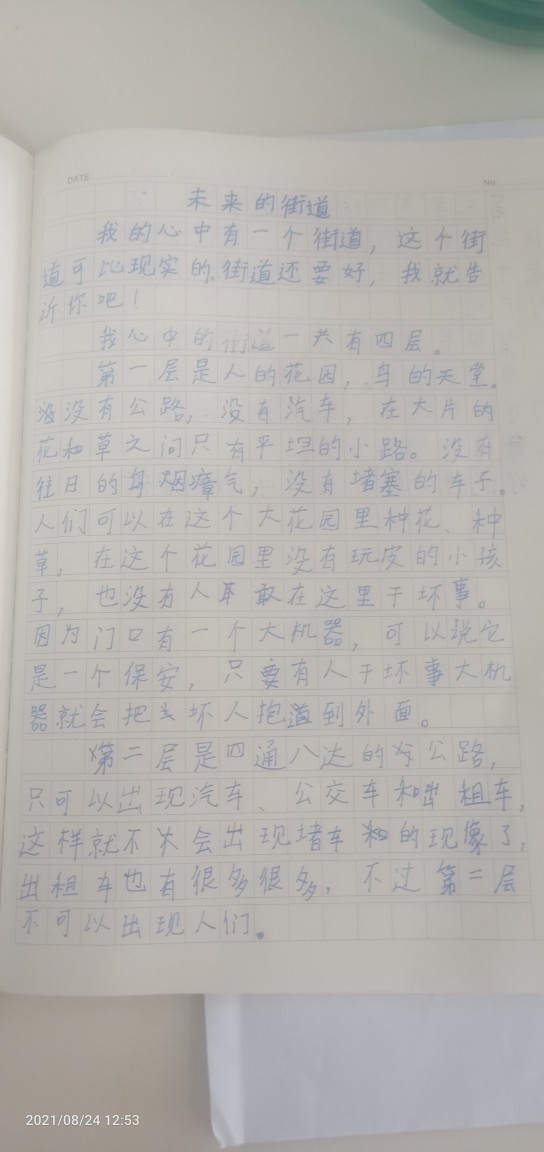 DATE
NO
未来的街道
我的心中有一个街道，这个街
道可比现实的街道还要好，我就告
诉你吧！
我心中的街道一共有四层。
第一层是人的花园，鸟的天堂。
没有公路，没有汽车，在大片的
花和草之间只有平坦的小路。没有
往日的乌烟瘴气，没有堵塞的车子。
人们可以在这个大花园里种花、种
草，在这个花园里没有玩皮的小孩
子，也没有人敢在这里干坏事。
因为门口有一个大机器，可以说它
是一个保安，只要有人干坏事大机
器就会把坏人抱到外面。
第二层是四通八达的公路，
只可以出现汽车、公交车和出租车，
这样就不会出现堵车的现像了，
出租车也有很多很多，不过第二层
不可以出现人们。
2021/08/24 12:53